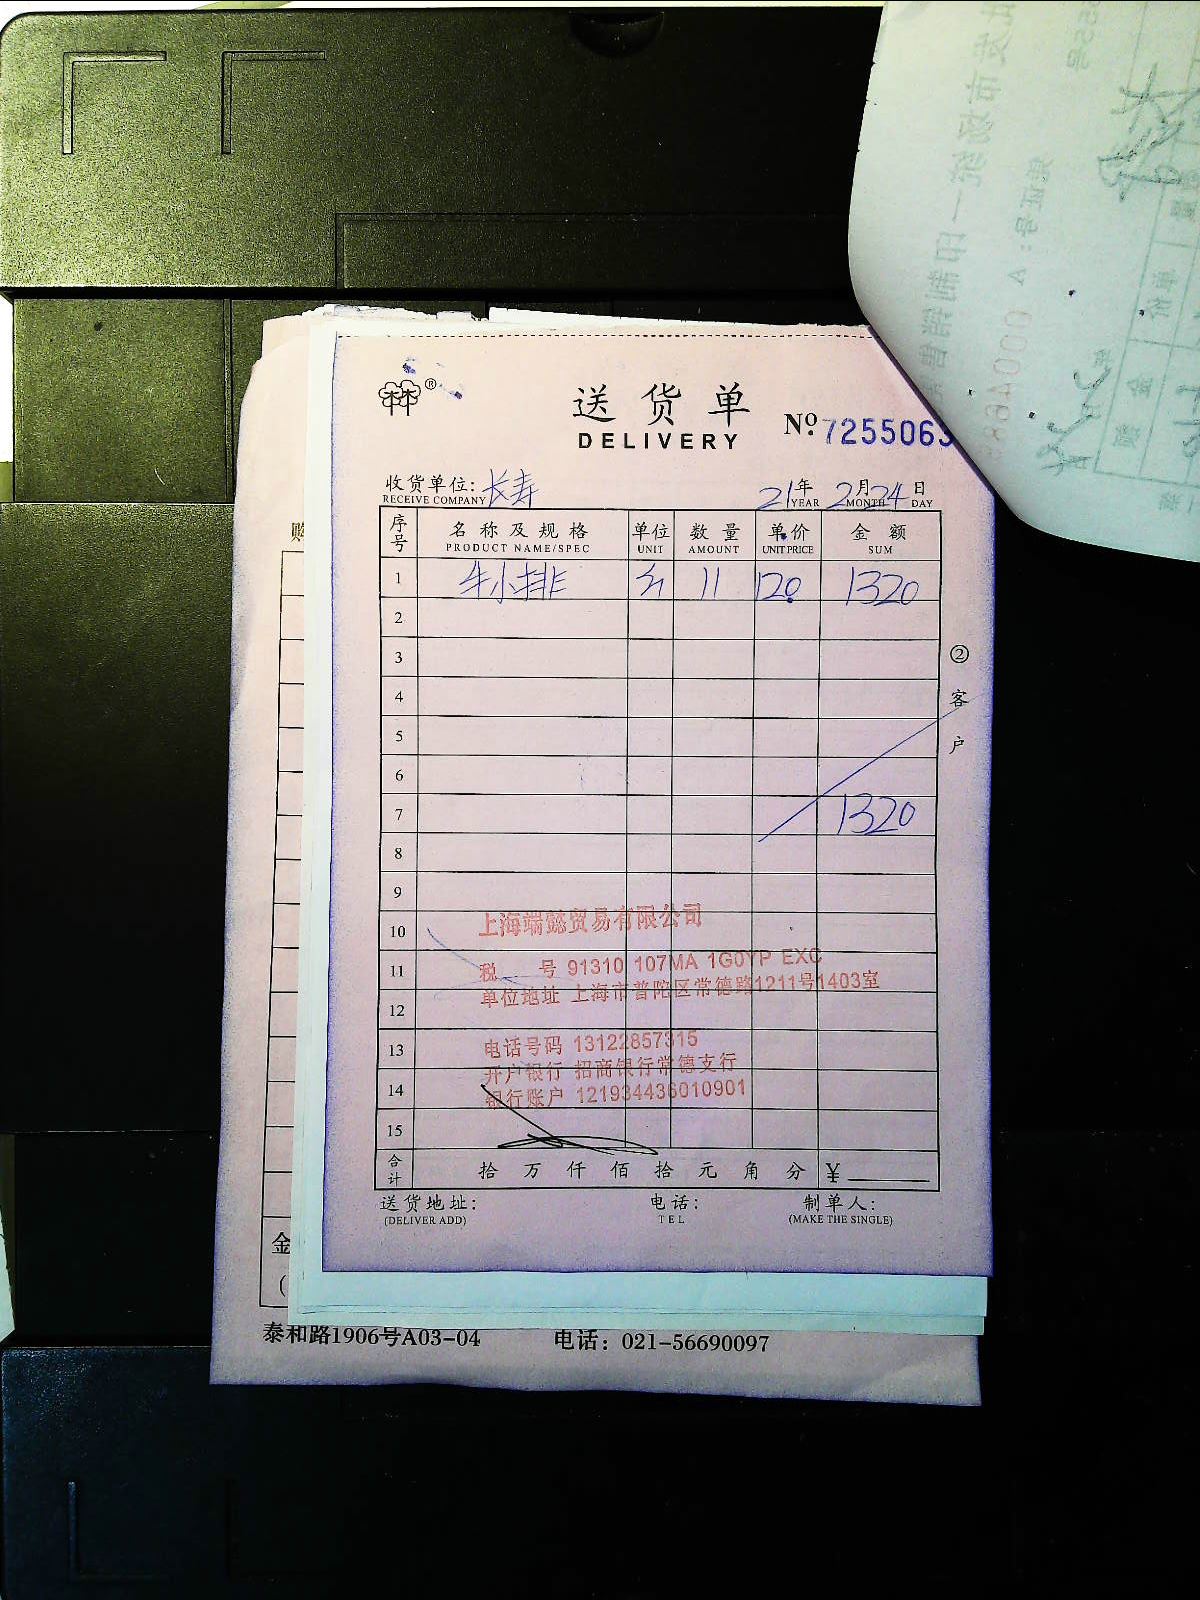 送货单
DELIVERY
№ 7255063
收货单位: 长寿
RECEIVE COMPANY
21年 2月24日
YEAR MONTH DAY
序号 名称及规格 单位 数量 单价 金额
PRODUCT NAME/SPEC UNIT AMOUNT UNIT PRICE SUM
1 牛小排 11 120 1320
2
3
4
5
6
7 1320
8
9
10
11
12
13
14
15
上海端懿贸易有限公司
税 号 91310 107MA 1G0YP EXC
单位地址 上海市普陀区常德路1211号1403室
电话号码 13122857315
开户银行 招商银行常德支行
银行账户 121934436010901
合计 拾 万 仟 佰 拾 元 角 分 ¥
送货地址: 电话: 制单人:
(DELIVER ADD) TEL (MAKE THE SINGLE)
② 客户
购
金
(
泰和路1906号A03-04 电话: 021-56690097